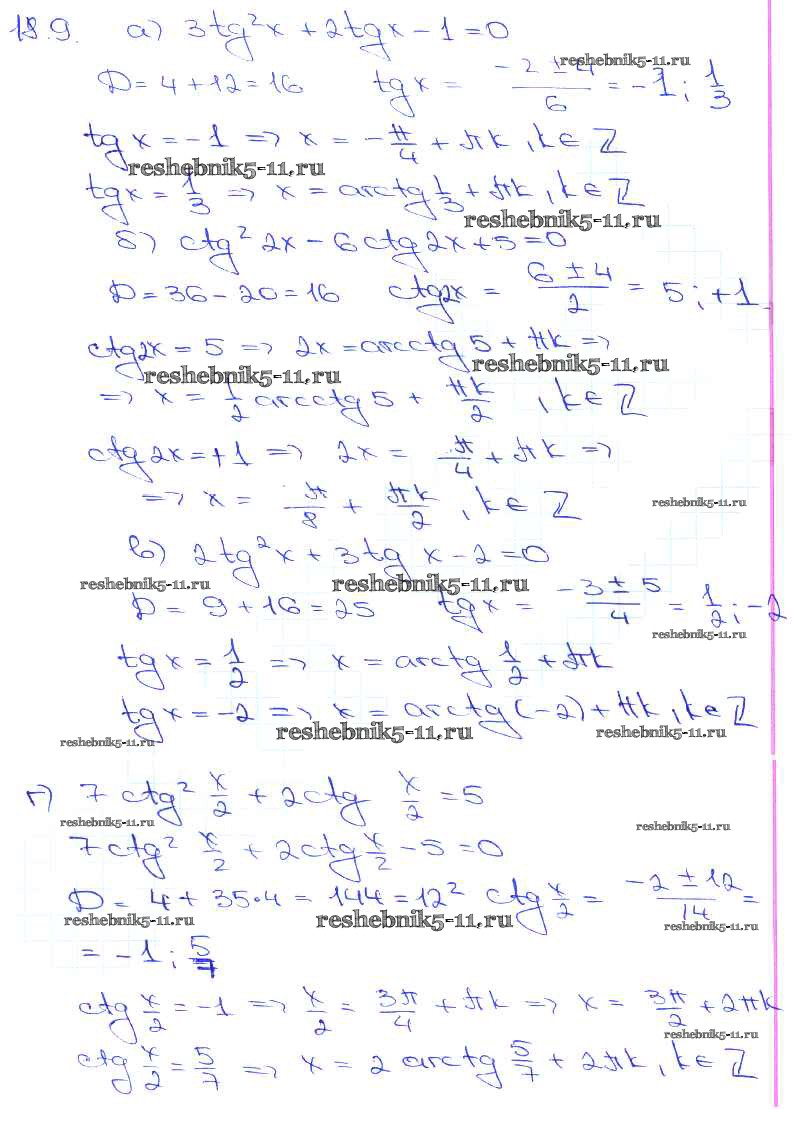 18.9. а) 3tg²x + 2tgx - 1 = 0
reshebnik5-11.ru
D = 4 + 12 = 16 tgx = (-2 ± 4)/6 = -1; 1/3
tgx = -1 => x = -π/4 + πk, k ∈ Z
reshebnik5-11.ru
tgx = 1/3 => x = arctg 1/3 + πk, k ∈ Z
reshebnik5-11.ru
б) ctg²2x - 6ctg2x + 5 = 0
D = 36 - 20 = 16 ctg2x = (6 ± 4)/2 = 5; +1
ctg2x = 5 => 2x = arcctg5 + πk =>
reshebnik5-11.ru reshebnik5-11.ru
=> x = 1/2 arcctg5 + πk/2, k ∈ Z
ctg2x = +1 => 2x = π/4 + πk =>
=> x = π/8 + πk/2, k ∈ Z reshebnik5-11.ru
в) 2tg²x + 3tgx - 2 = 0
reshebnik5-11.ru reshebnik5-11.ru
D = 9 + 16 = 25 tgx = (-3 ± 5)/4 = 1/2; -2
reshebnik5-11.ru
tgx = 1/2 => x = arctg 1/2 + πk
tgx = -2 => x = arctg(-2) + πk, k ∈ Z
reshebnik5-11.ru reshebnik5-11.ru
reshebnik5-11.ru
г) 7ctg² x/2 + 2ctg x/2 = 5
reshebnik5-11.ru reshebnik5-11.ru
7ctg² x/2 + 2ctg x/2 - 5 = 0
D = 4 + 35·4 = 144 = 12² ctg x/2 = (-2 ± 12)/14 =
reshebnik5-11.ru reshebnik5-11.ru reshebnik5-11.ru
= -1; 5/7
ctg x/2 = -1 => x/2 = 3π/4 + πk => x = 3π/2 + 2πk
reshebnik5-11.ru
ctg x/2 = 5/7 => x = 2 arcctg 5/7 + 2πk, k ∈ Z